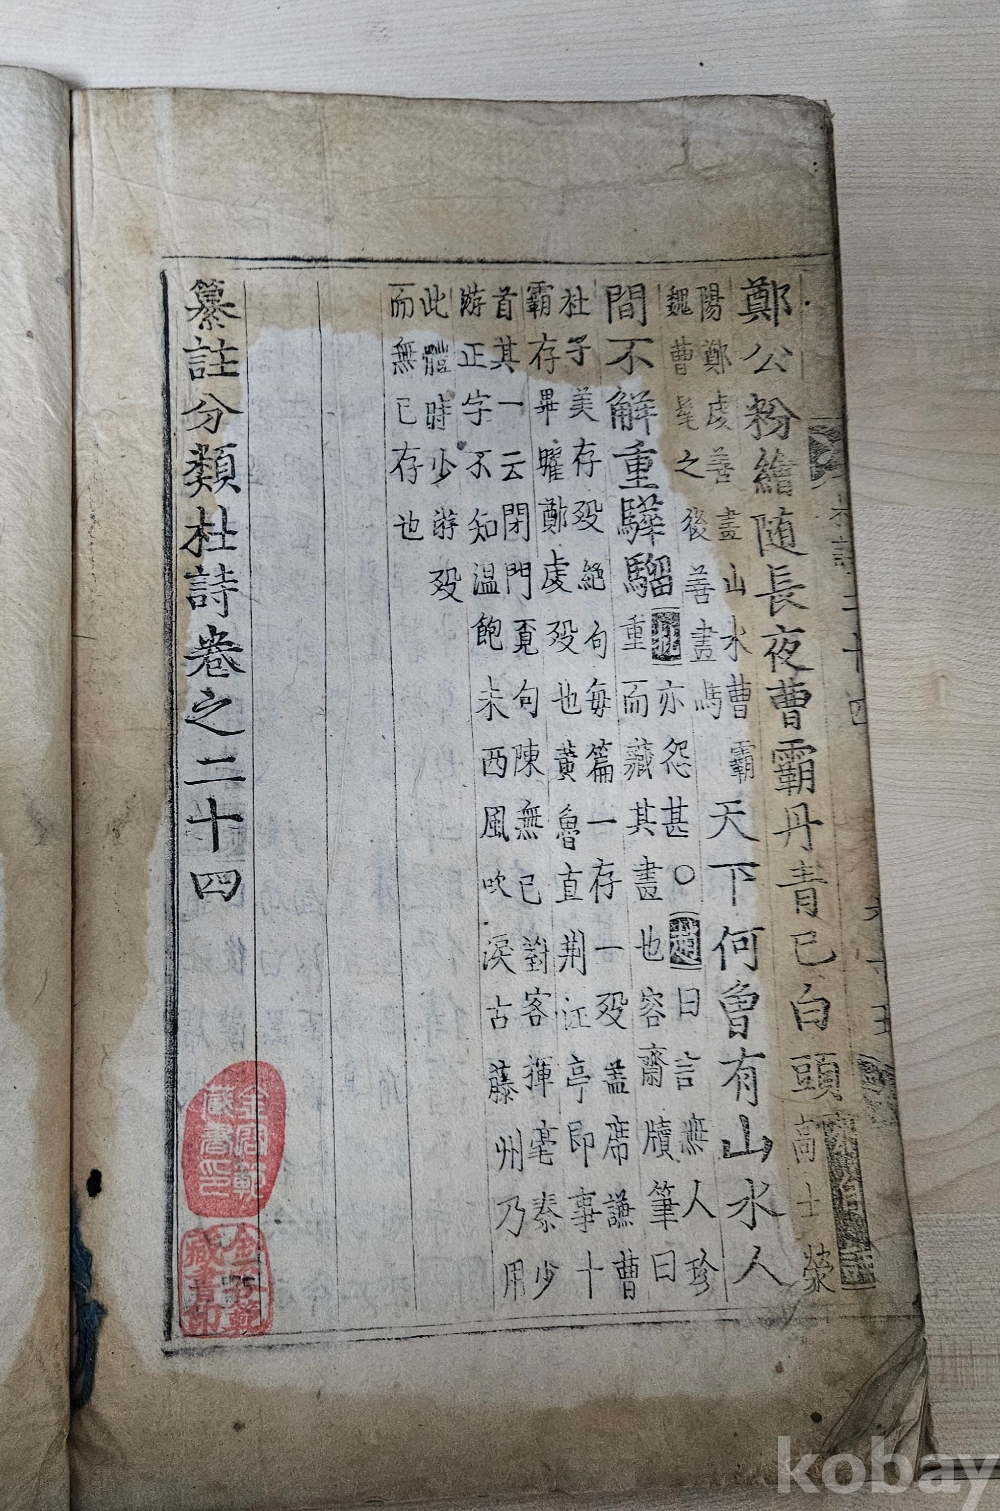 鄭公粉繪随長夜曹霸丹青已白頭高士滎
陽鄭虔善畫山水曹霸
魏曹髦之後善畫馬
天下何曾有山水人
間不解重驊騮
亦怨甚○
曰言無人珍
重而藏其畫也容齋牘筆曰
杜子美存殁絶句每篇一存一殁盖席謙曹
霸存畢曜鄭虔殁也黄魯直荆江亭即事十
首其一云閉門覓句陳無已對客揮毫秦少
游正字不知温飽未西風吹淚古藤州乃用
此體時少游殁
而無已存也
纂註分類杜詩卷之二十四
藏書印
kobay